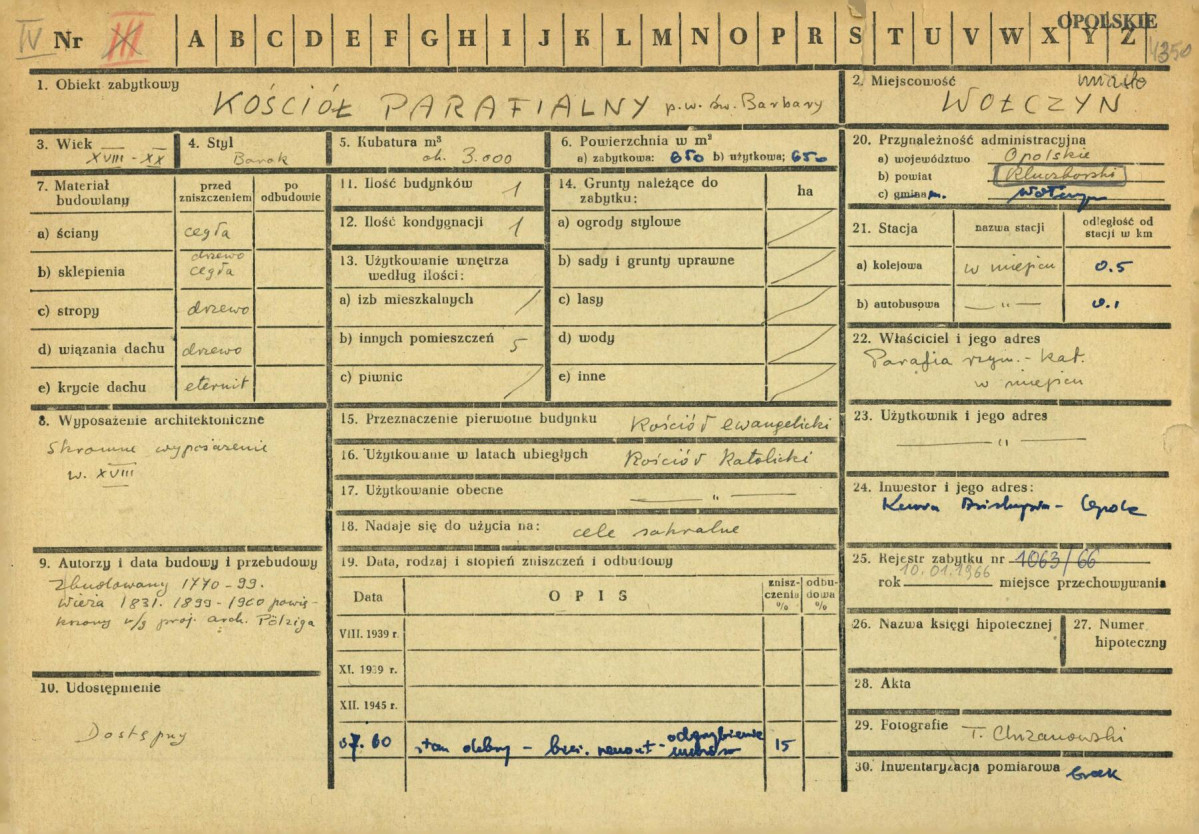 IV Nr III A B C D E F G H I J K L M N O P R S T U V W X Y Z OPOLSKIE
4350
1. Obiekt zabytkowy
KOŚCIÓŁ PARAFIALNY p.w. św. Barbary
2. Miejscowość miasto
WOŁCZYN
3. Wiek
XVIII - XX
4. Styl
Barok
5. Kubatura m³
ok. 3.000
6. Powierzchnia w m²
a) zabytkowa: 650 b) użytkowa; 650
7. Materiał budowlany
przed zniszczeniem
po odbudowie
a) ściany cegła
b) sklepienia drzewo cegła
c) stropy drzewo
d) wiązania dachu drzewo
e) krycie dachu eternit
8. Wyposażenie architektoniczne
Skromne wyposażenie
w. XVIII
9. Autorzy i data budowy i przebudowy
Zbudowany 1770-99.
Wieża 1831. 1899-1900 powię-
kszony w/g proj. arch. Pölziga
10. Udostępnienie
Dostępny
11. Ilość budynków 1
12. Ilość kondygnacji 1
13. Użytkowanie wnętrza
według ilości:
a) izb mieszkalnych /
b) innych pomieszczeń 5
c) piwnic /
14. Grunty należące do
zabytku:
ha
a) ogrody stylowe /
b) sady i grunty uprawne /
c) lasy /
d) wody /
e) inne /
15. Przeznaczenie pierwotne budynku Kościół ewangelicki
16. Użytkowanie w latach ubiegłych Kościół Katolicki
17. Użytkowanie obecne — „ —
18. Nadaje się do użycia na: cele sakralne
19. Data, rodzaj i stopień zniszczeń i odbudowy
Data
OPIS
znisz-
czenia
%
odbu-
dowa
%
VIII. 1939 r.
XI. 1939 r.
XII. 1945 r.
7. 60 stan dobry - bież. remont - odgrzybienie murów 15
20. Przynależność administracyjna
a) województwo Opolskie
b) powiat Kluczborski
c) gmina m. Wołczyn
21. Stacja
nazwa stacji
odległość od
stacji w km
a) kolejowa w miejscu 0.5
b) autobusowa — „ — 0.1
22. Właściciel i jego adres
Parafia rzym.-kat.
w miejscu
23. Użytkownik i jego adres
— „ —
24. Inwestor i jego adres:
Kuria Biskupia - Opole
25. Rejestr zabytku nr 1063/66
10.01.1966
rok miejsce przechowywania
26. Nazwa księgi hipotecznej
27. Numer
hipoteczny
28. Akta
29. Fotografie T. Chrzanowski
30. Inwentaryzacja pomiarowa brak